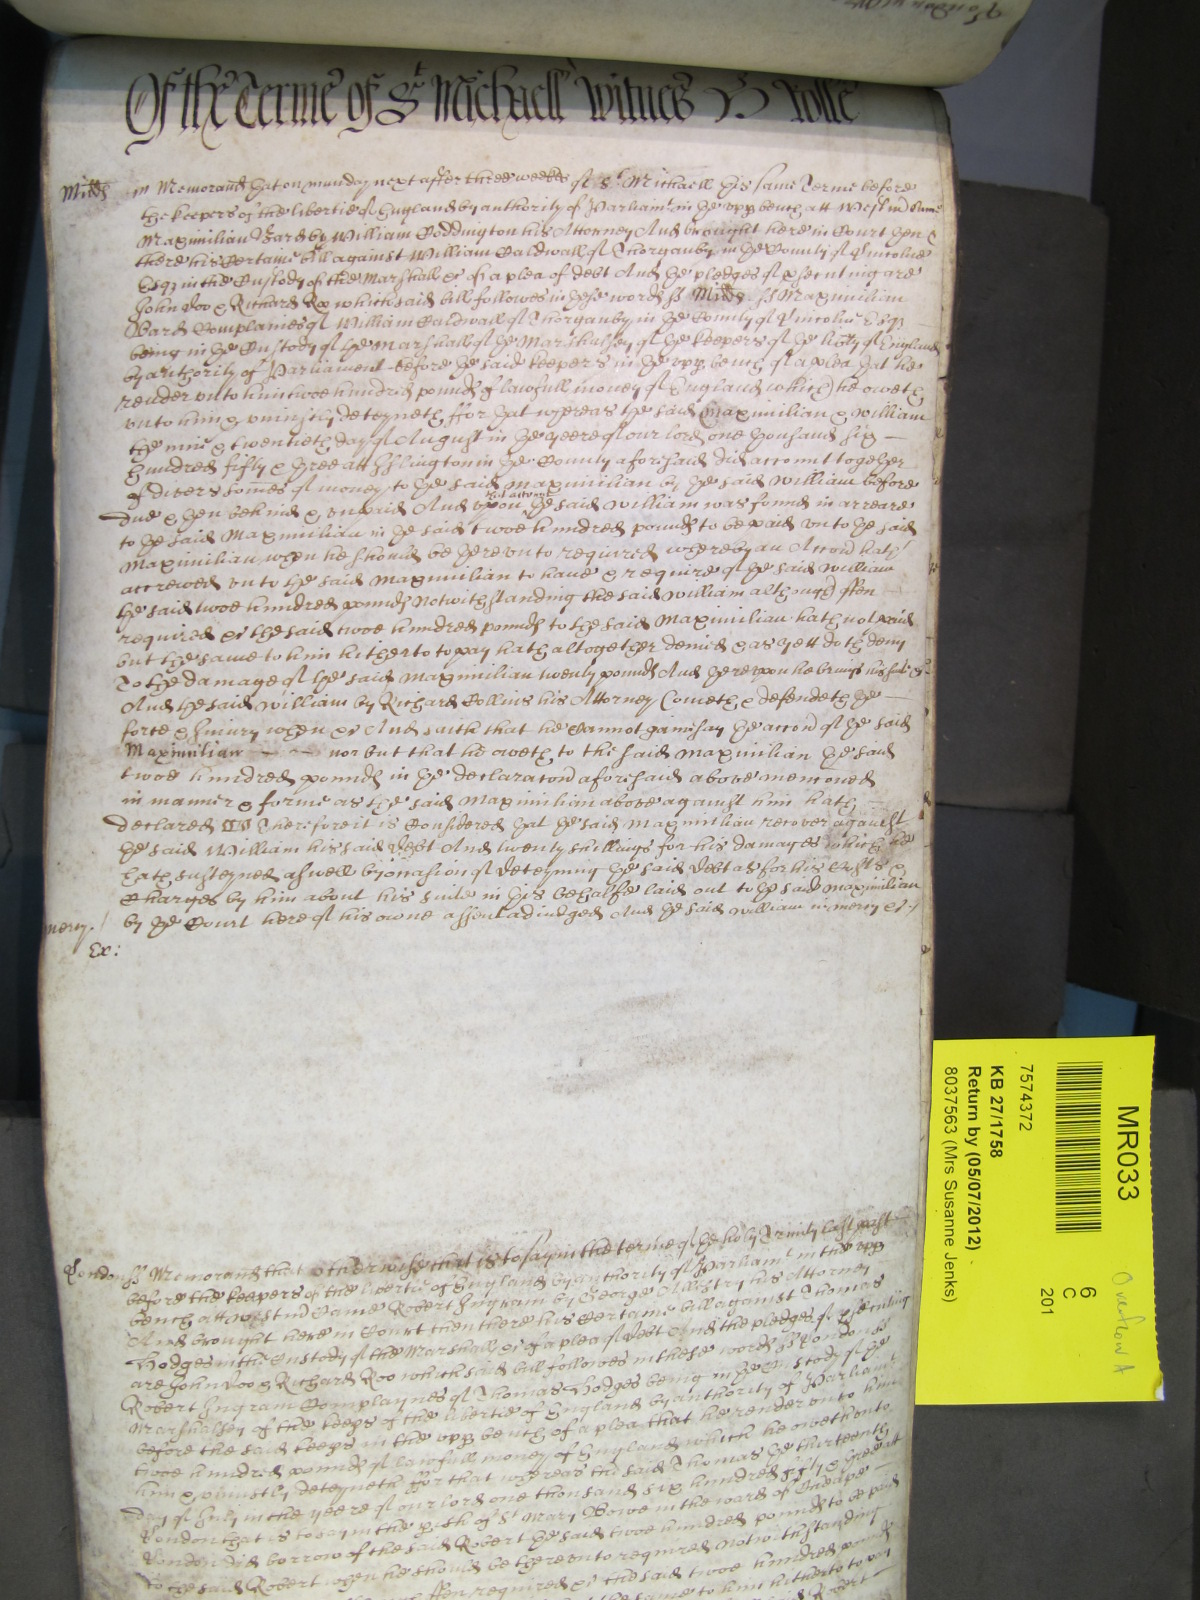 Of the Terme of St Michaell Witnes H Rolle
Midds ss Memorand that on munday next after three weekes of St Michaell this same Terme before
the keepers of the libertie of England by authority of Parliamt in the upp bench att Westmr Came
Maximilian Bard by William Coddington his Attorney And brought here in Court then &
there his Certaine bill against William Caldwall of Thorganby in the County of Lincolne
Esqr in the Custody of the Marshall &c of a plea of debt And the pledges of psecuting are
John Doo & Richard Roo which said bill followes in these words ss Midds ss Maximilian
Bard Complaines of William Caldwall of Thorganby in the County of Lincolne Esqr
being in the Custody of the Marshall of the Marshalsey of the keepers of the liberty of England
by authority of Parliament before the said keepers in the upp bench of a plea that he
render unto him twoe hundred pounds of lawfull money of England which he oweth
unto him & uniustly deteyneth ffor that whereas the said Maximilian & William
the nine & twentieth day of August in the yeere of our lord one thousand six
hundred fifty & three att Islington in the County aforesaid did accompt together
of divers somes of money to the said Maximilian by the said William before
due & then behind & unpaid And upon that accompt the said William was found in arreare
to the said Maximilian in the said twoe hundred pounds to be paid unto the said
Maximilian when he should be thereunto required whereby an Accon hath
accrewed unto the said Maximilian to have & require of the said William
the said twoe hundred pounds Notwithstanding the said William although often
required &c the said twoe hundred pounds to the said Maximilian hath not paid
but the same to him hitherto to pay hath altogether denied & as yett doth deny
To the damage of the said Maximilian twenty pounds And thereupon he brings his suite &c
And the said William by Richard Collins his Attorney Cometh & defendeth the
force & Iniury when &c And saith that he Cannot gainesay the accon of the said
Maximilian nor but that he oweth to the said Maximilian the said
twoe hundred pounds in the declaracon aforesaid above mencioned
in manner & forme as the said Maximilian above against him hath
declared Therefore it is Considered that the said Maximilian recover against
the said William his said debt And twenty shillings for his damages which he
hath susteyned aswell by occasion of deteyning the said debt as for his Costs &
Charges by him about his suite in this behalfe laid out to the said Maximilian
by the Court here of his owne assent adiudged And the said William in mercy &c
mercy
Ex:
London ss Memorand that otherwise that is to say in the terme of the holy Trinity last past
before the keepers of the libertie of England by authority of Parliamt in the upp
bench att Westmr Came Robert Ingram by George his Attorney
And brought here in Court then there his Certaine bill against Thomas
Hodges in the Custody of the Marshall &c of a plea of debt And the pledges of psecuting
are John Doo & Richard Roo which said bill followes in these words ss London ss
Robert Ingram Complaynes of Thomas Hodges being in the Custody of the
Marshalsey of the keeps of the libertie of England by authority of Parliamt
before the said keeps in the upp bench of a plea that he render unto him
twoe hundred pounds of lawfull money of England which he oweth unto
him & uniustly deteyneth ffor that whereas the said Thomas the thirteenth
day of July in the yeere of our lord one thousand six hundred fifty & three att
London that is to say in the pish of St Mary Bowe in the ward of Cheape
London did borrow of the said Robert the said twoe hundred pounds to be paid
to the said Robert when he should be thereunto required Notwithstanding
often required &c the said twoe hundred pounds
the same to him hitherto to pay
Robert
MR033
7574372
KB 27/1758
Return by (05/07/2012)
8037563 (Mrs Susanne Jenks)
6
C
201
Overflow A